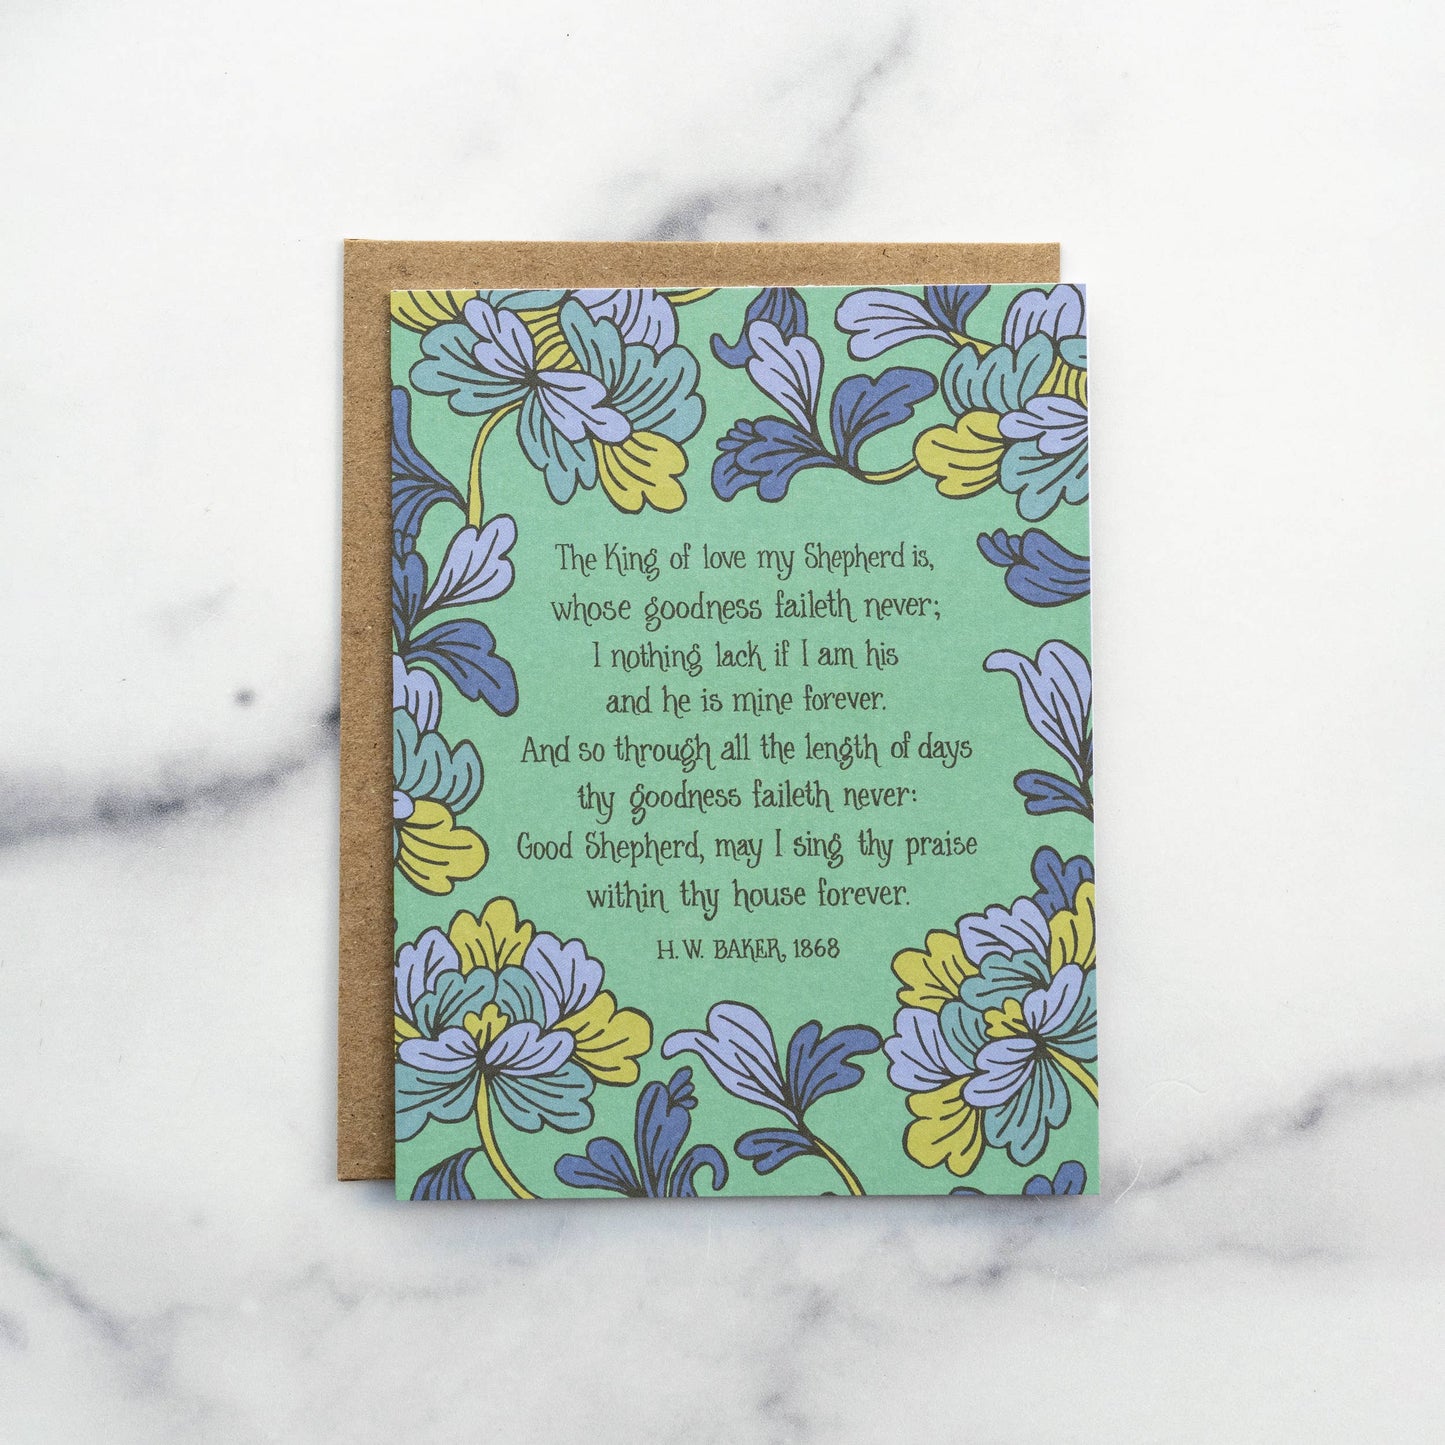 The King of love my Shepherd is,
whose goodness faileth never;
I nothing lack if I am his
and he is mine forever.
And so through all the length of days
thy goodness faileth never:
Good Shepherd, may I sing thy praise
within thy house forever.
H. W. BAKER, 1868